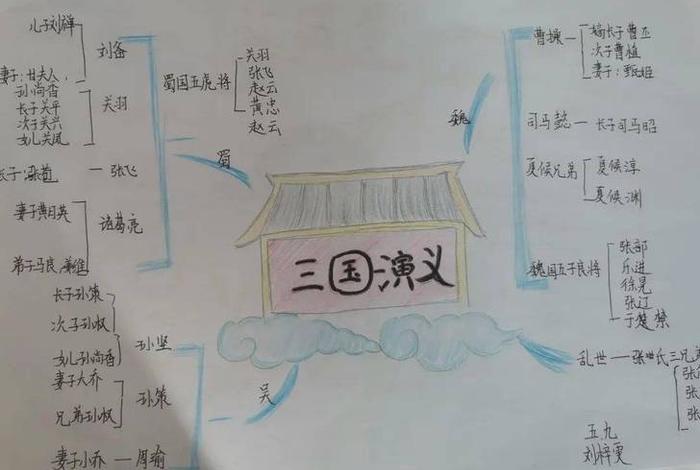 三国演义
蜀
儿子刘禅
刘备
妻子:甘夫人,
孙尚香
长子关平
关羽
次子关兴
女儿关凤
长子:张苞
张飞
妻子黄月英
诸葛亮
弟子马良,姜维
蜀国五虎将
关羽
张飞
赵云
黄忠
赵云
吴
长子孙策
次子孙权
孙坚
女儿孙尚香
妻子大乔
孙策
兄弟孙权
妻子小乔
周瑜
魏
曹操
嫡长子曹丕
次子曹植
妻子:甄姬
司马懿
长子司马昭
夏侯兄弟
夏侯淳
夏侯渊
魏国五子良将
张郃
乐进
徐晃
张辽
于禁
乱世
张
张
张
五九
刘梓雯